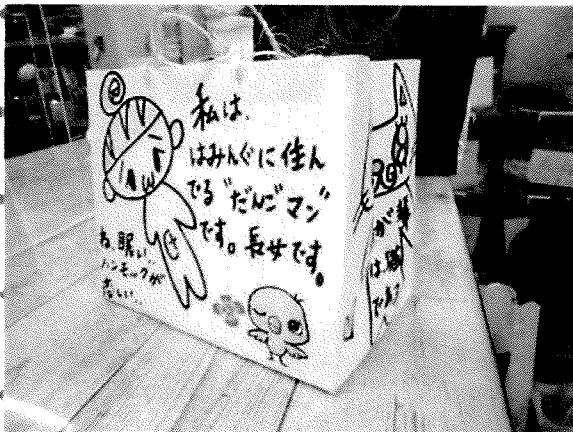 私は、
はみんぐに住ん
でる"だんごマン"
です。長女です。
ね、眠い…
ハンモックが
恋しい…